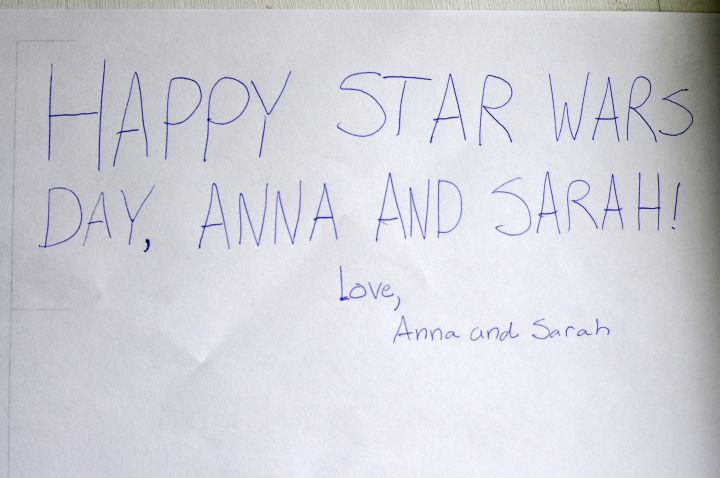 HAPPY STAR WARS
DAY, ANNA AND SARAH!
Love,
Anna and Sarah